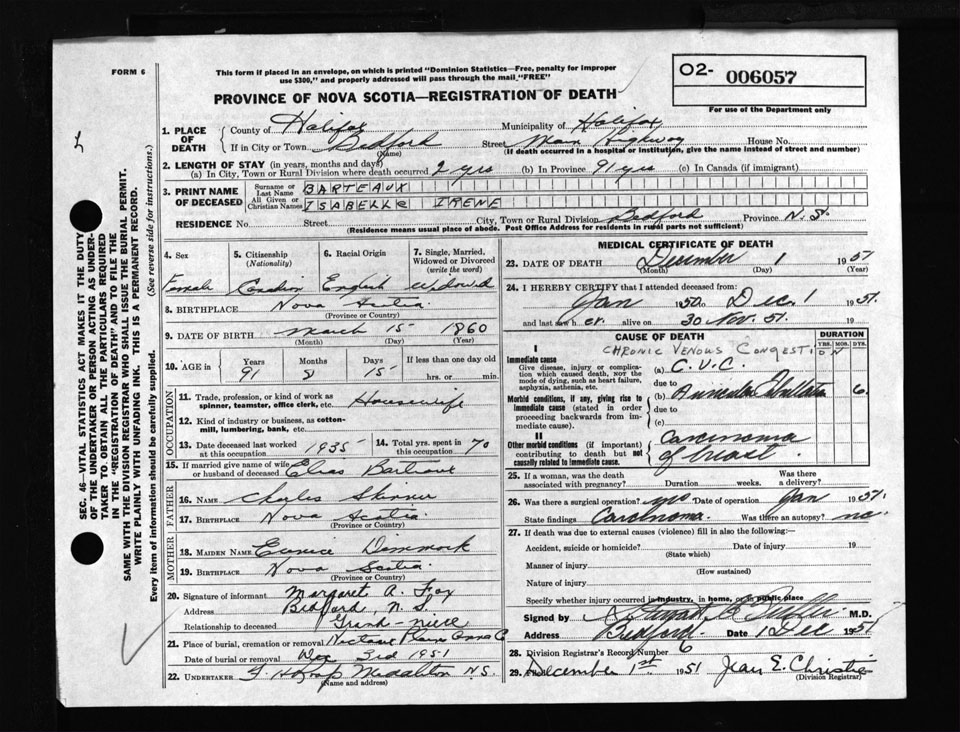 FORM 6
This form if placed in an envelope, on which is printed "Dominion Statistics—Free, penalty for improper
use $300," and properly addressed will pass through the mail "FREE"
PROVINCE OF NOVA SCOTIA—REGISTRATION OF DEATH
O2- 006057
For use of the Department only
SEC. 46 VITAL STATISTICS ACT MAKES IT THE DUTY
OF THE UNDERTAKER OR PERSON ACTING AS UNDER-
TAKER TO OBTAIN ALL THE PARTICULARS REQUIRED
IN THE "REGISTRATION OF DEATH" AND TO FILE THE
SAME WITH THE DIVISION REGISTRAR WHO SHALL ISSUE THE BURIAL PERMIT.
WRITE PLAINLY WITH UNFADING INK. THIS IS A PERMANENT RECORD.
Every item of information should be carefully supplied. (See reverse side for instructions.)
1. PLACE OF DEATH County of Halifax Municipality of Halifax
If in City or Town Bedford Street Main Highway House No.
(Name) (If death occurred in a hospital or institution, give the name instead of street and number)
2. LENGTH OF STAY (in years, months and days)
(a) In City, Town or Rural Division where death occurred 2 yrs (b) In Province 91 yrs (c) In Canada (if immigrant)
3. PRINT NAME OF DECEASED Surname or Last Name BARTEAUX
All Given or Christian Names ISABELLE IRENE
RESIDENCE No. Street City, Town or Rural Division Bedford Province N.S.
(Residence means usual place of abode. Post Office Address for residents in rural parts not sufficient)
4. Sex 5. Citizenship (Nationality) 6. Racial Origin 7. Single, Married, Widowed or Divorced (write the word)
Female Canadian English Widowed
8. BIRTHPLACE Nova Scotia
(Province or Country)
9. DATE OF BIRTH March 15 1860
(Month) (Day) (Year)
10. AGE in Years Months Days If less than one day old
91 8 15 hrs. or min.
OCCUPATION
11. Trade, profession, or kind of work as spinner, teamster, office clerk, etc. Housewife
12. Kind of industry or business, as cotton-mill, lumbering, bank, etc.
13. Date deceased last worked at this occupation 1935 14. Total yrs. spent in 70
15. If married give name of wife or husband of deceased Elias Barteaux
FATHER
16. NAME Charles Skinner
17. BIRTHPLACE Nova Scotia
(Province or Country)
MOTHER
18. MAIDEN NAME Eunice Dimmock
19. BIRTHPLACE Nova Scotia
(Province or Country)
20. Signature of informant Margaret A. Fox
Address Bedford, N.S.
Relationship to deceased Grand-niece
21. Place of burial, cremation or removal
Date of burial or removal 3rd 1951
22. UNDERTAKER Middleton N.S.
(Name and address)
MEDICAL CERTIFICATE OF DEATH
23. DATE OF DEATH December 1 1951
(Month) (Day) (Year)
24. I HEREBY CERTIFY that I attended deceased from:
Jan 1950 to Dec. 1 1951.
and last saw h er alive on 30 Nov. 51. 19
CAUSE OF DEATH DURATION
YRS. MOS. DYS.
CHRONIC VENOUS CONGESTION
I
Immediate cause (a) C.V.C.
Give disease, injury or complication which caused death, not the mode of dying, such as heart failure, asphyxia, asthenia, etc.
due to
Morbid conditions, if any, giving rise to immediate cause (stated in order proceeding backwards from immediate cause). (b) Auricular Fibrillation 6
due to
(c)
II
Other morbid conditions (if important) contributing to death but not causally related to immediate cause. Carcinoma
of breast.
25. If a woman, was the death associated with pregnancy? Duration weeks. Was there a delivery?
26. Was there a surgical operation? yes Date of operation Jan 1951.
State findings Carcinoma. Was there an autopsy? no.
27. If death was due to external causes (violence) fill in also the following:
Accident, suicide or homicide? Date of injury 19
(State which)
Manner of injury
(How sustained)
Nature of injury
Specify whether injury occurred in industry, in home, or in public place
Signed by M.D.
Address Bedford. Date 1 Dec 1951
28. Division Registrar's Record Number 6
29. Filed December 1st 1951 Jean E. Christie
(Division Registrar)